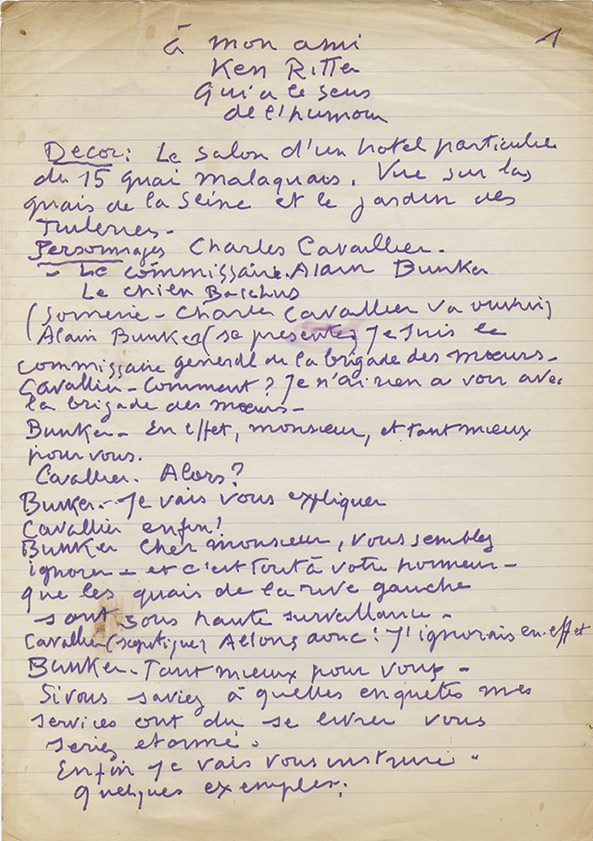 1
à mon ami
Ken Ritter
qui a le sens
de l'humour
Decor: Le salon d'un hotel particulier
du 15 quai malaquais. Vue sur les
quais de la Seine et le jardin des
Tuileries-
Personnages Charles Cavallier.
- Le commissaire. Alain Bunker
Le chien Bacchus
(Sonnerie - Charles Cavallier va ouvrir)
Alain Bunker (se presente) Je suis le
commissaire general de la brigade des mœurs-
Cavallier- Comment? Je n'ai rien a voir avec
la brigade des mœurs-
Bunker- En effet, monsieur, et tant mieux
pour vous.
Cavallier. Alors?
Bunker.- Je vais vous expliquer
Cavallier enfin!
Bunker Cher monsieur, vous semblez
ignorer - et c'est tout à votre honneur-
que les quais de la rive gauche
sont sous haute surveillance-
Cavallier (sceptique) Allons donc! J'ignorais en effet
Bunker- Tant mieux pour vous-
Si vous saviez à quelles enquetes mes
services ont du se livrer vous
seriez etonné.
Enfin Je vais vous instruire.
quelques exemples: